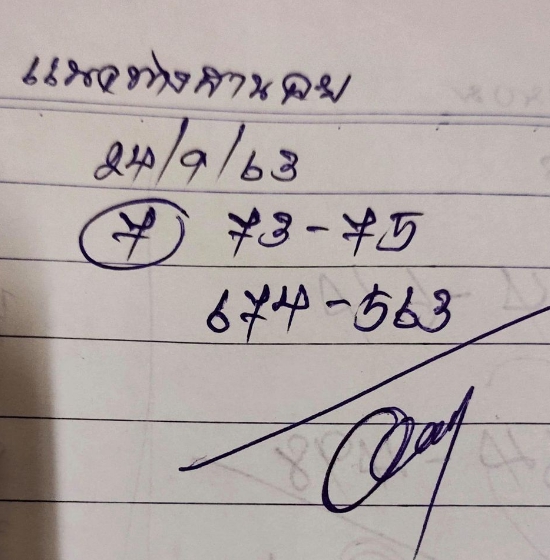 แนวทางฮานอย
24/9/63
7 73-75
674-563